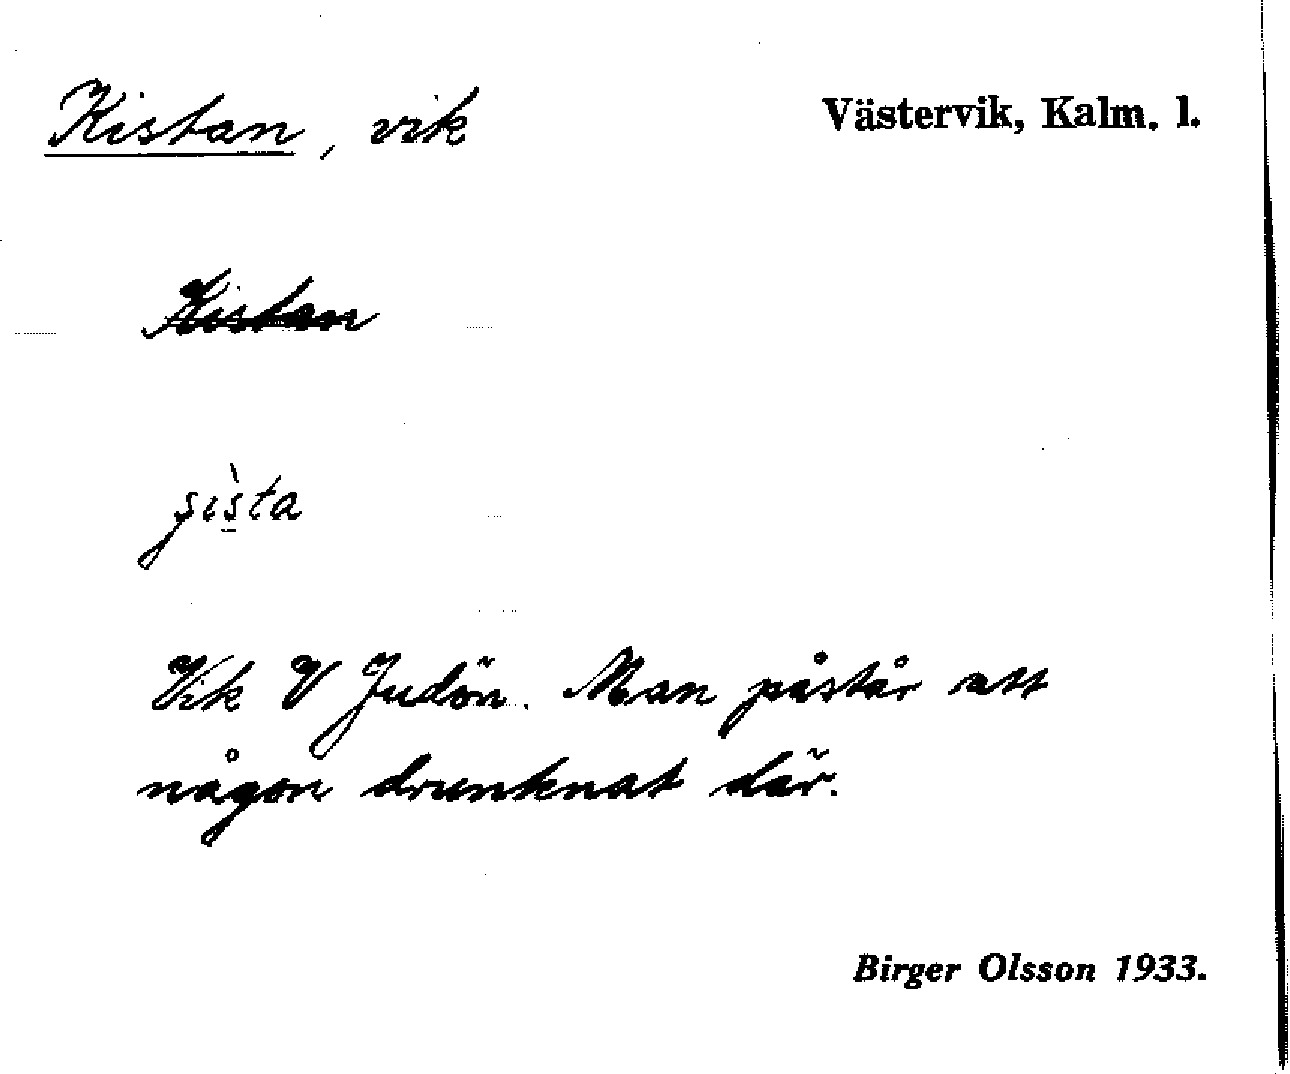 Kistan, vik
Västervik, Kalm. l.
Kistan
Vik V Judön. Man påstår att
någon drunknat där.
Birger Olsson 1933.